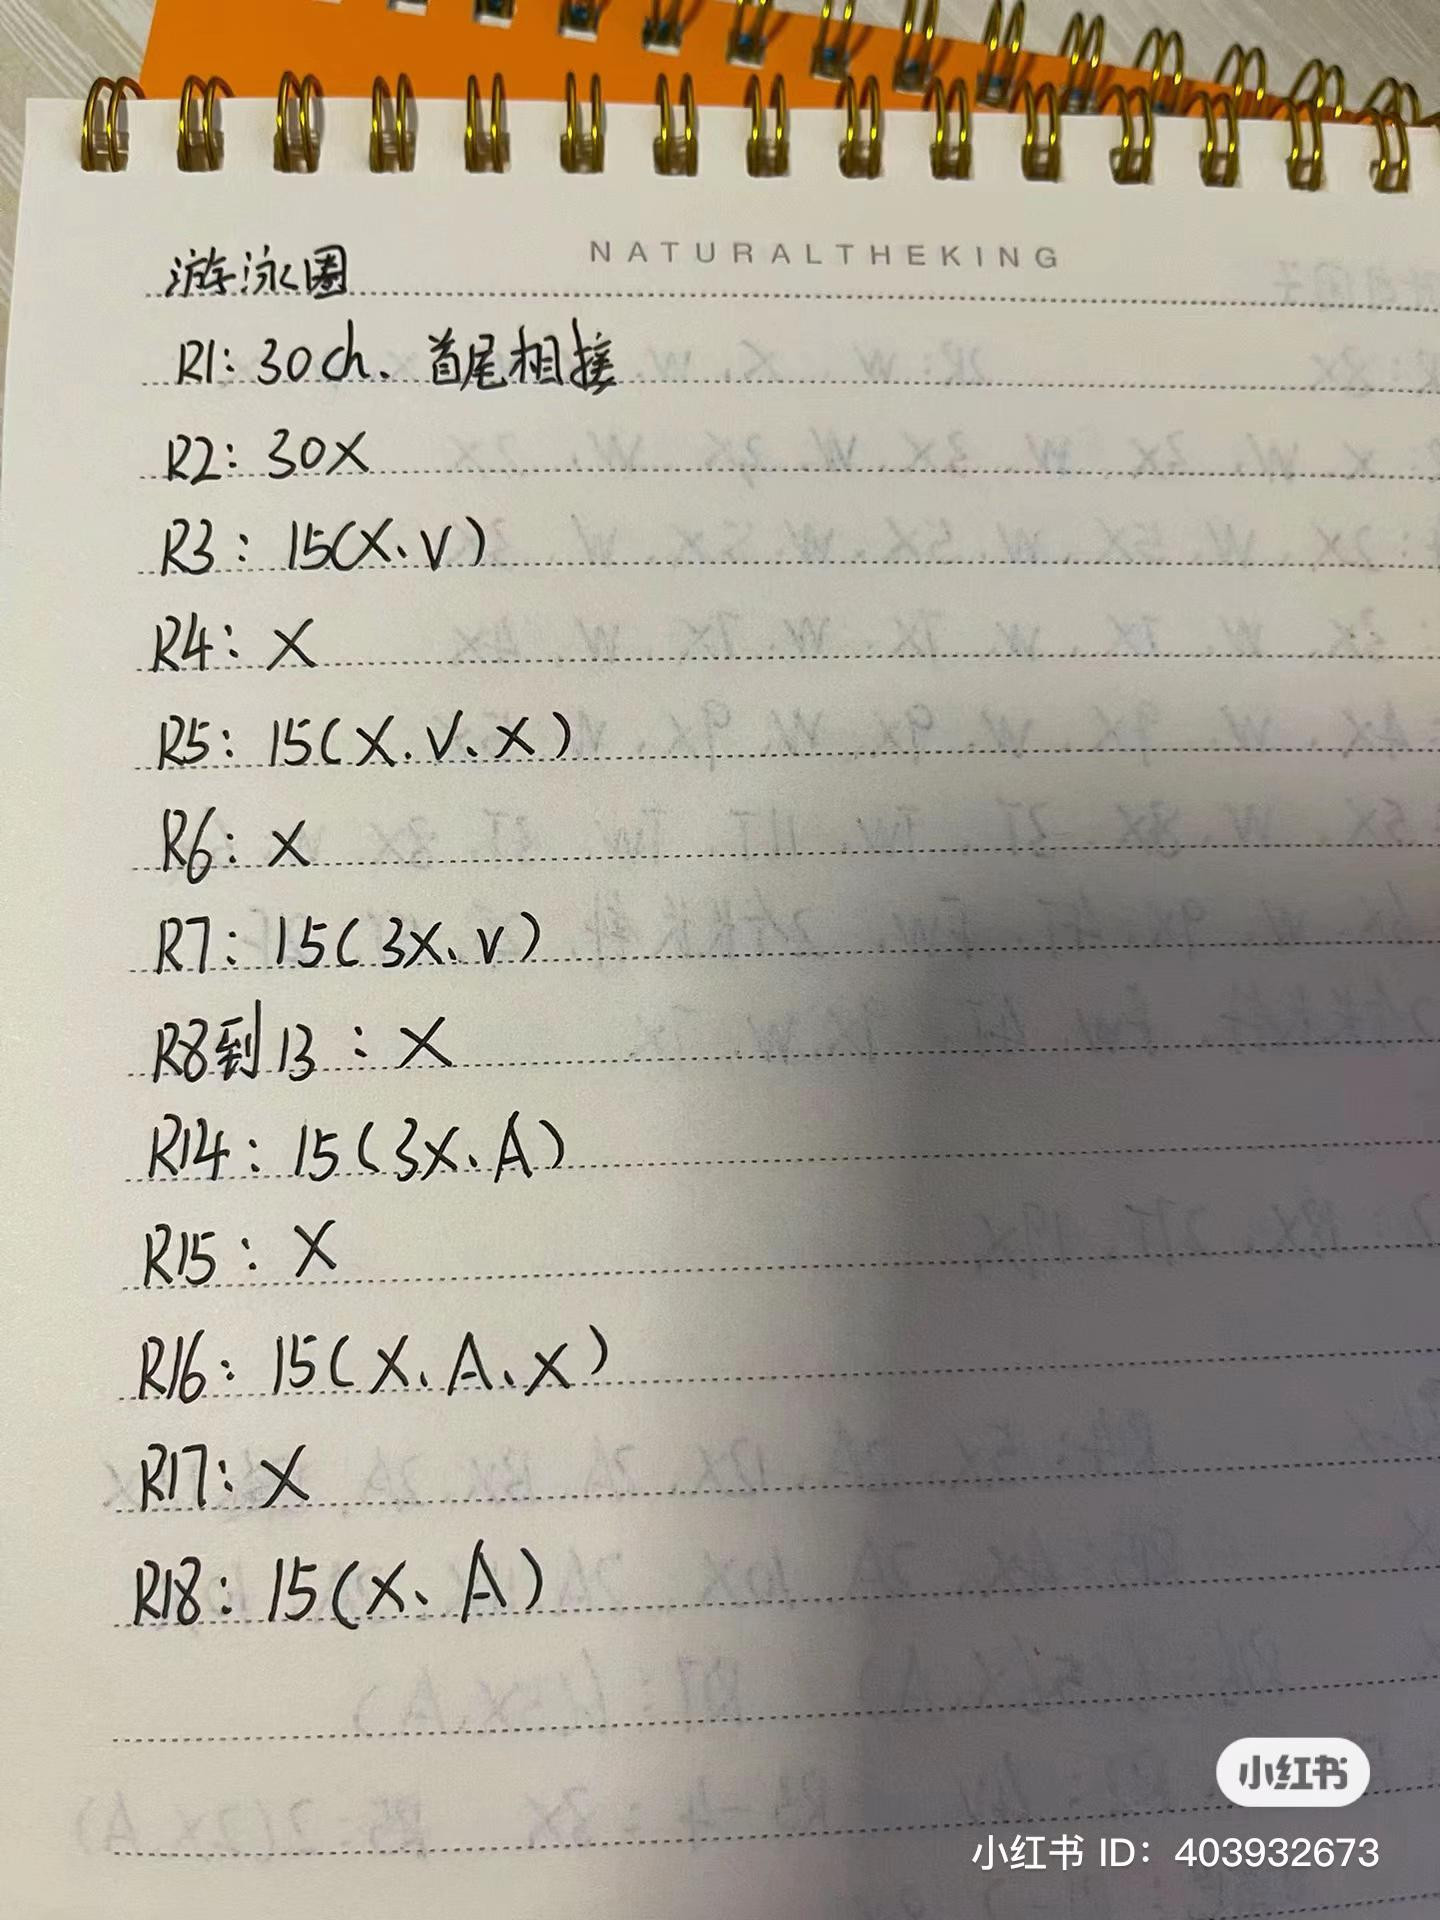 NATURALTHEKING
游泳圈
R1: 30ch、首尾相接
R2: 30X
R3: 15(X、V)
R4: X
R5: 15(X、V、X)
R6: X
R7: 15(3X、V)
R8到13: X
R14: 15(3X、A)
R15: X
R16: 15(X、A、X)
R17: X
R18: 15(X、A)
小红书
小红书 ID: 403932673